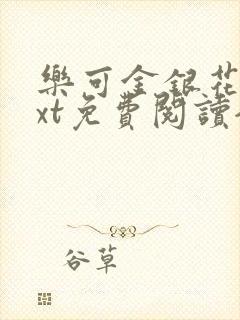 樂可金銀花
xt免費閱讀
谷草